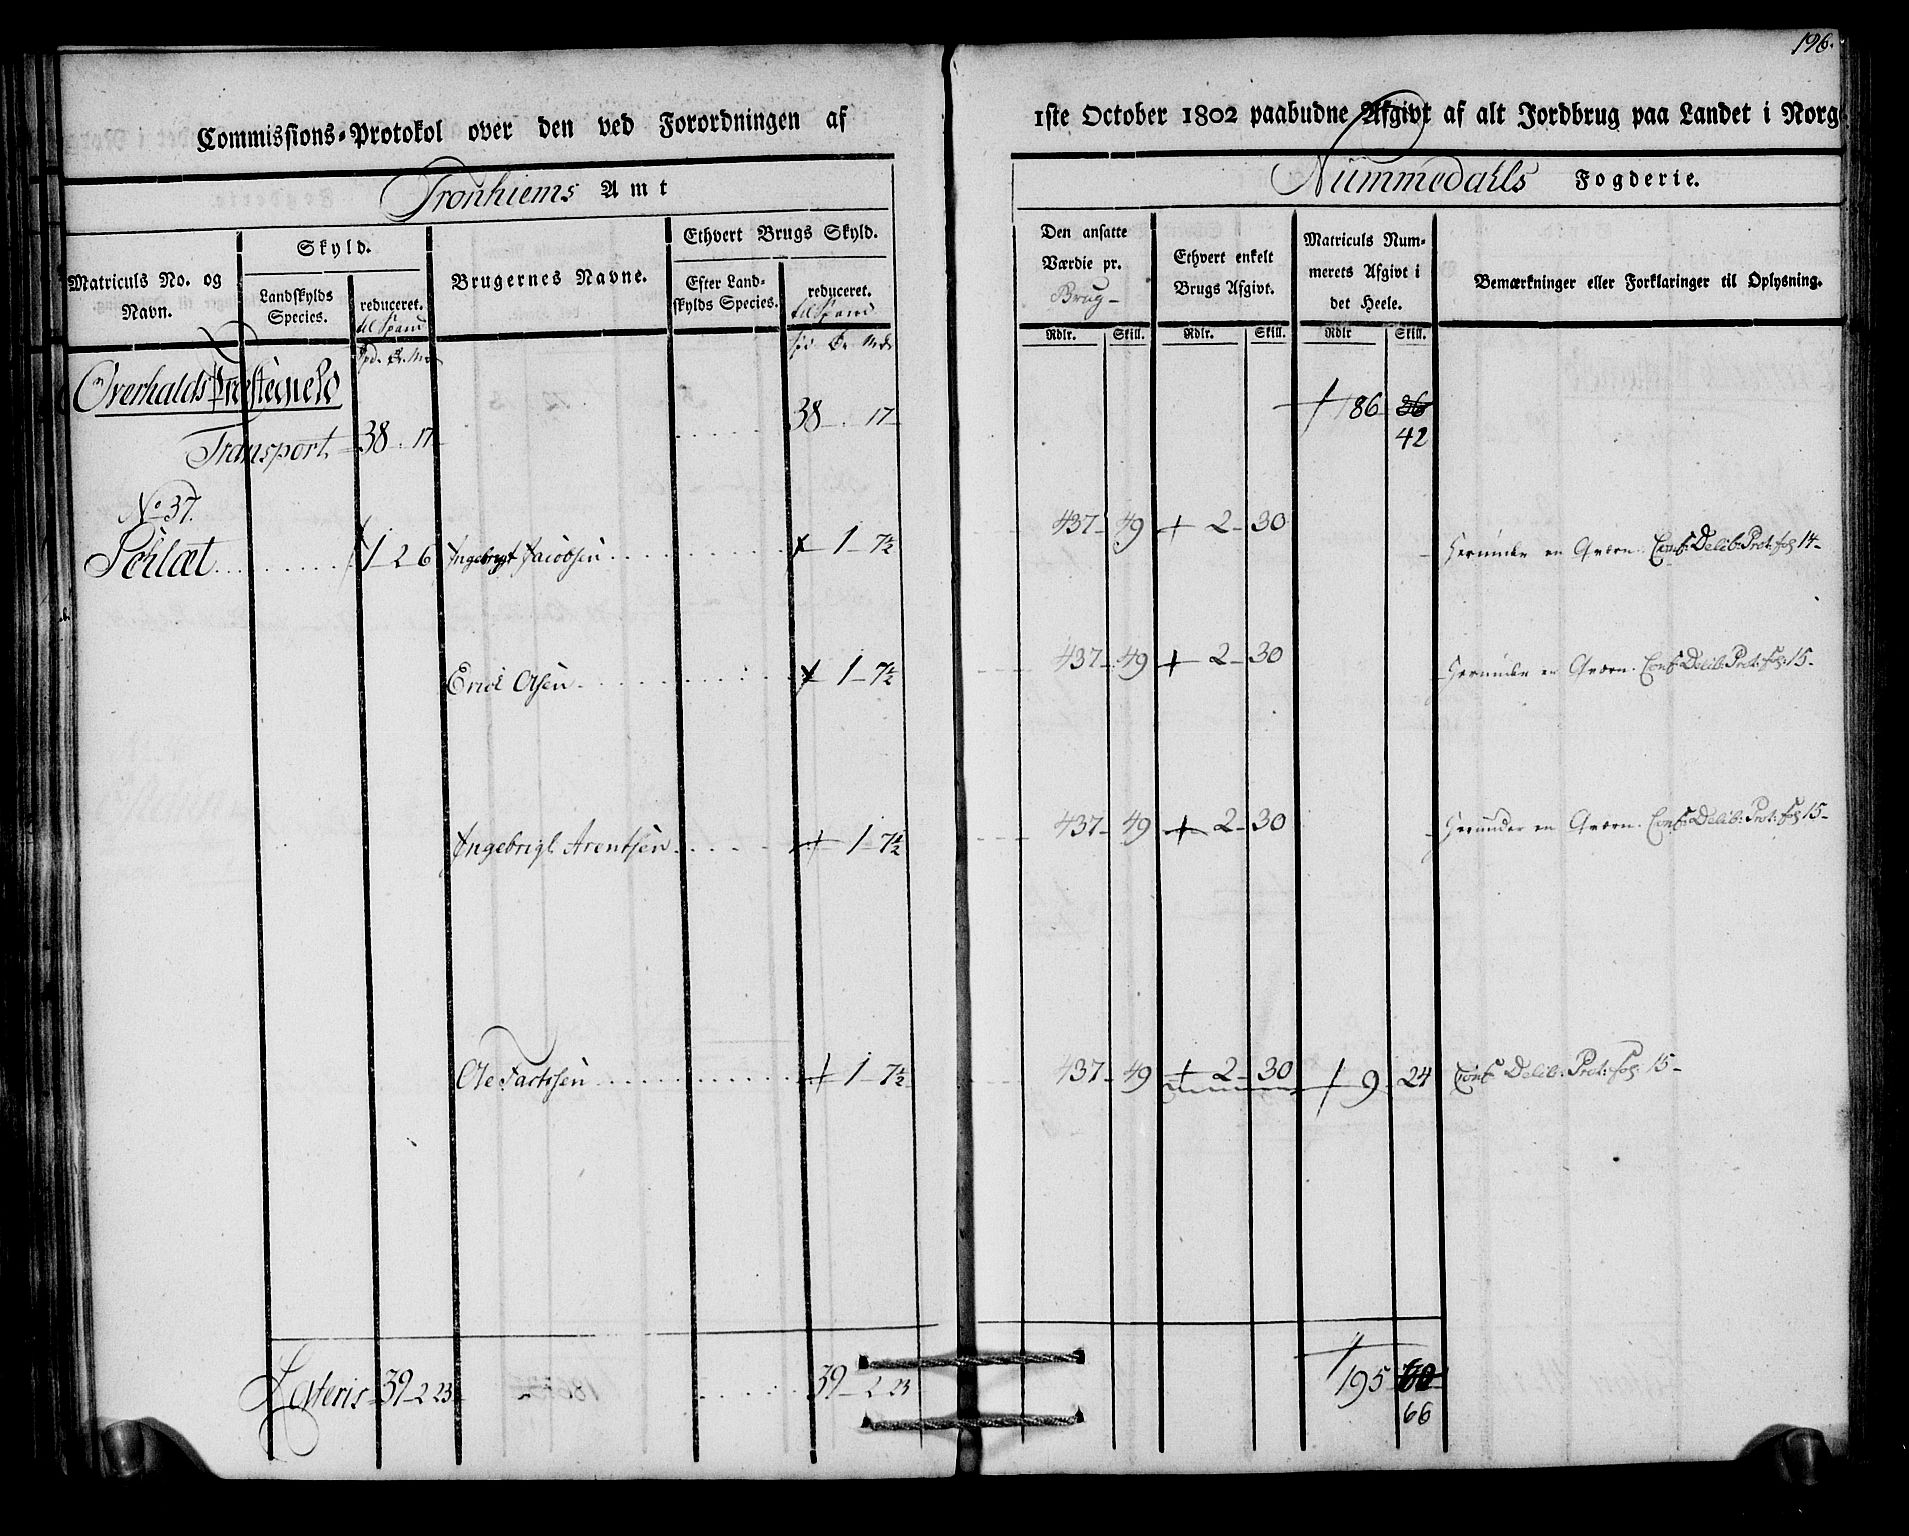 196.
Commissions-Protokol over den ved Forordningen af
1ste October 1802 paabudne Afgivt af alt Jordbrug paa Landet i Norg
Tronhiems Amt
Nummedahls Fogderie.
Matriculs No. og Navn.
Skyld.
Landskylds Species.
reduceret.
til Spand
Brugernes Navne.
Ethvert Brugs Skyld.
Efter Landskylds Species.
reduceret.
til Spand
Den ansatte Værdie pr.
Brug
Ethvert enkelt Brugs Afgivt.
Matriculs Nummerets Afgivt i det Heele.
Bemærkninger eller Forklaringer til Oplysning.
Rdlr. Skill. Rdlr. Skill. Rdlr Skill.
Overhalds Præstegield
Transport 38 . 17 38 . 17 186 26
42
No 37.
1 2 6 Ingebrigt Jacobsen 1 - 7½ 437 - 49 2 - 30 Herunder en Qværn. Conf: Delib: Prot: fol: 14
Erich Olsen 1 - 7½ 437 - 49 2 - 30 Herunder en Qværn. Conf: Delib: Prot: fol: 15
Ingebrigt Arentsen 1 - 7½ 437 - 49 2 - 30 Herunder en Qværn. Conf: Delib: Prot: fol: 15
Ole 1 - 7½ 437 - 49 2 - 30 9 24 Conf: Delib: Prot: fol: 15
Lateris 39 - 2 23 39 - 2 23 195
66